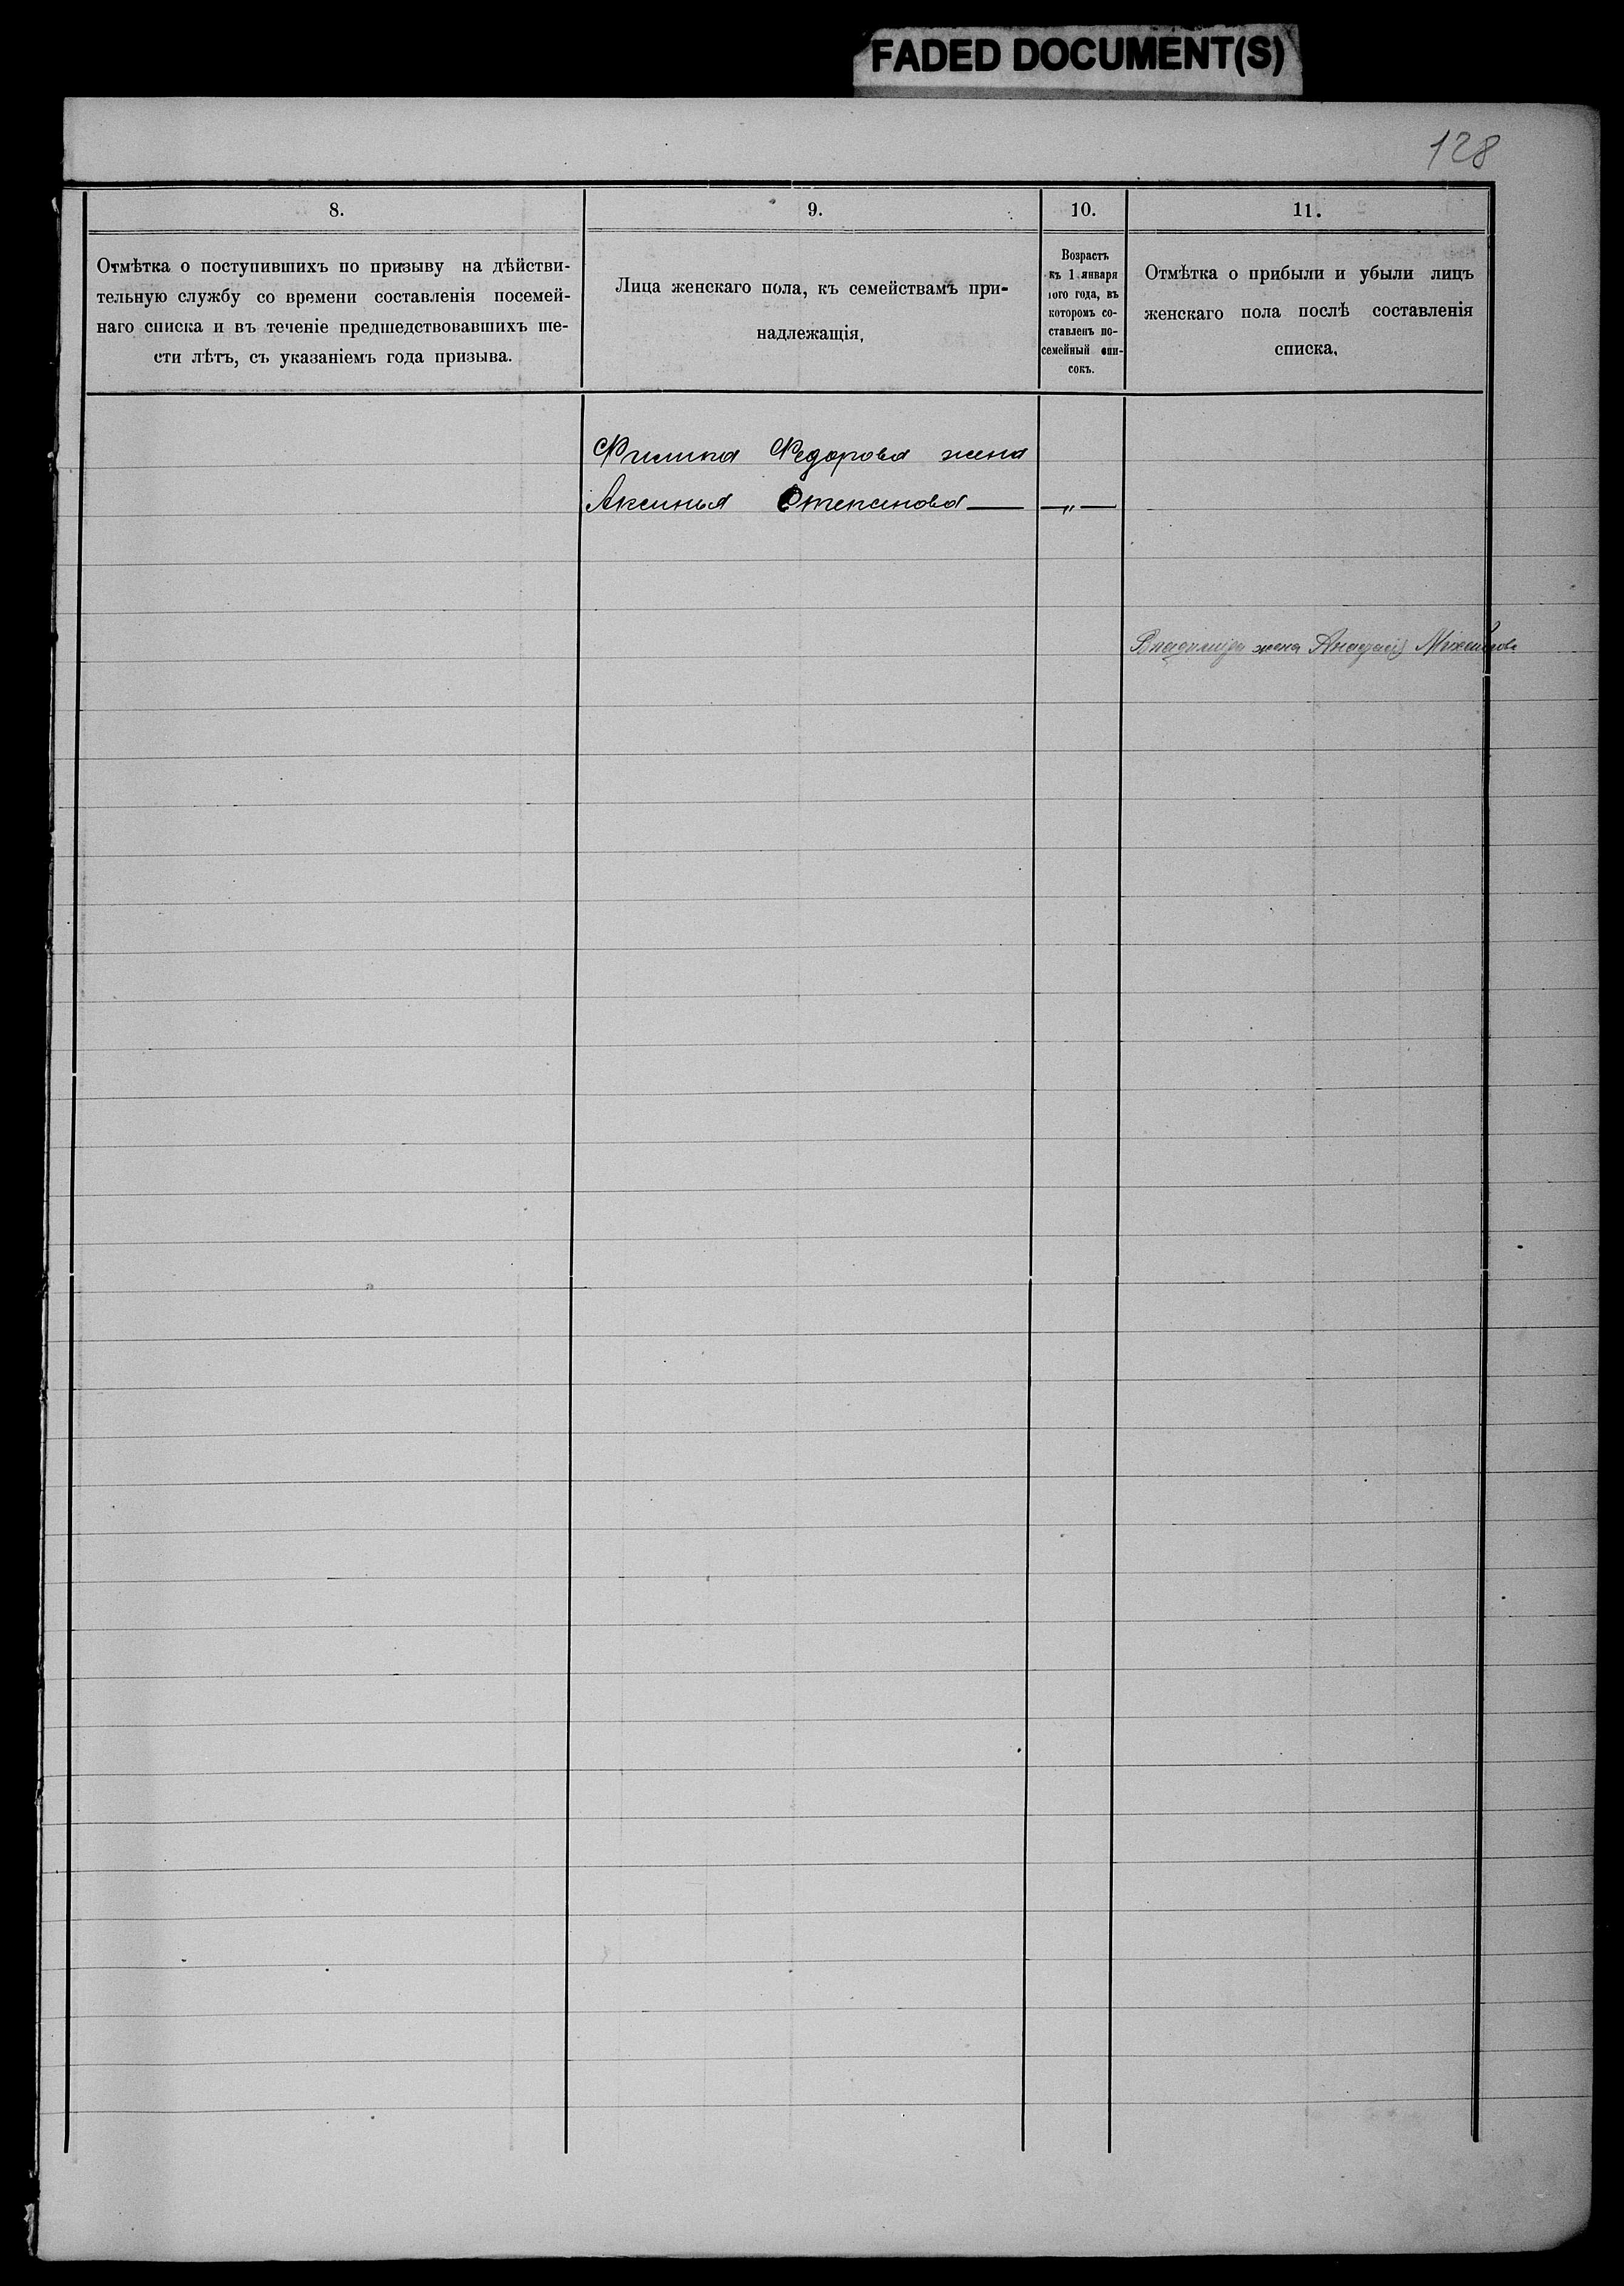 FADED DOCUMENT(S)
128
8.
Отмѣтка о поступившихъ по призыву на дѣйстви-
тельную службу со времени составленія посемей-
наго списка и въ теченіе предшедствовавшихъ ше-
сти лѣтъ, съ указаніемъ года призыва.
9.
Лица женскаго пола, къ семействамъ при-
надлежащія,
10.
Возрастъ
къ 1 января
того года, въ
которомъ со-
ставленъ по-
семейный спи-
сокъ.
11.
Отмѣтка о прибыли и убыли лицъ
женскаго пола послѣ составленія
списка,
Филипа Федорова жена
Аксинья Степанова — — „ —
Владиміра жена Михайлова